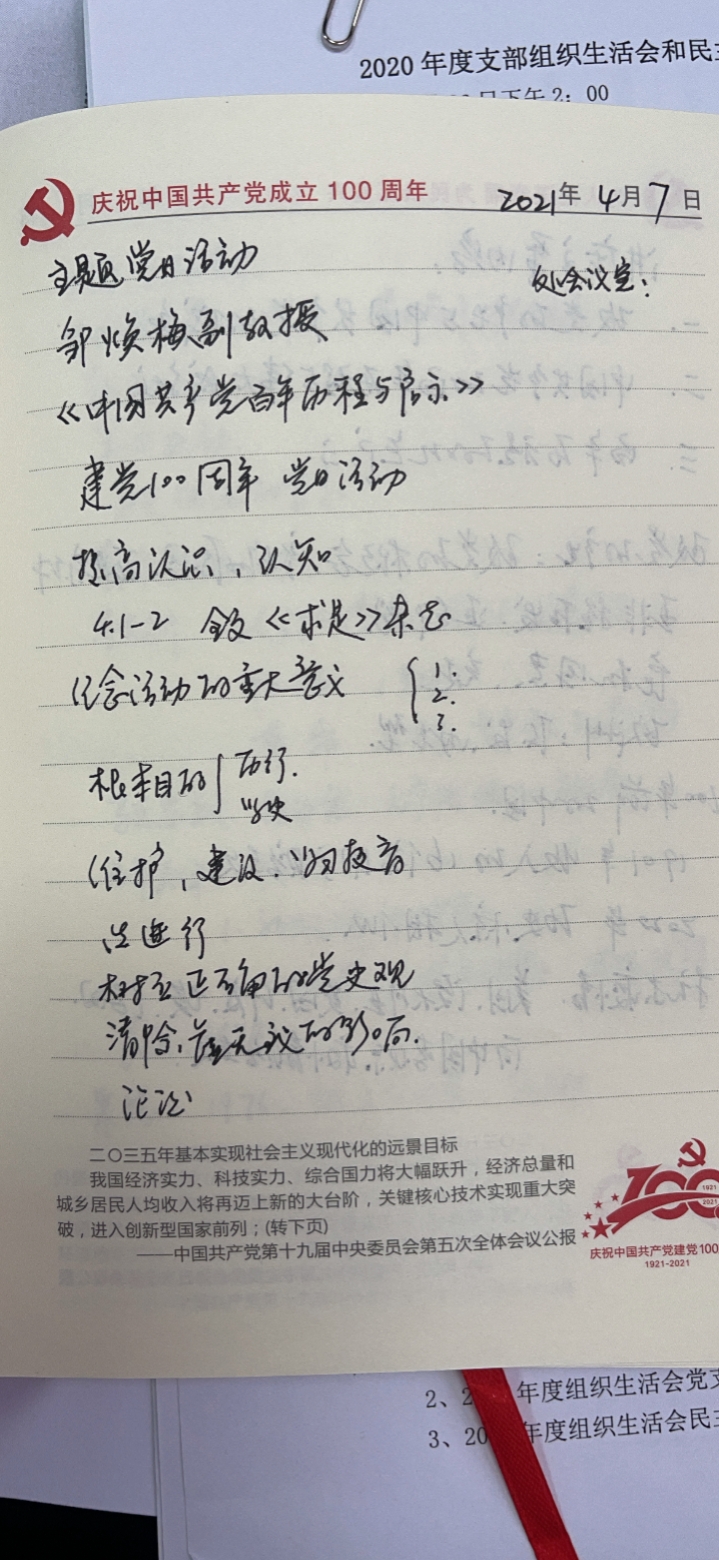 2020 年度支部组织生活会和民主
日下午 2：00
庆祝中国共产党成立 100 周年
2021年 4月 7日
主题党日活动
处会议室：
邹焕梅副教授
《中国共产党百年历程与启示》
建党100周年 党日活动
提高认识，认知
4.1-2 全文《求是》杂志
纪念活动的重大意义 { 1.
2.
3.
根本目的
维护，建设.
树立正确的党史观
清除, 的影响.
二〇三五年基本实现社会主义现代化的远景目标
我国经济实力、科技实力、综合国力将大幅跃升，经济总量和
城乡居民人均收入将再迈上新的大台阶，关键核心技术实现重大突
破，进入创新型国家前列；(转下页)
——中国共产党第十九届中央委员会第五次全体会议公报
100
1921
2021
庆祝中国共产党建党100
1921-2021
2、2 年度组织生活会党支
3、20 年度组织生活会民主